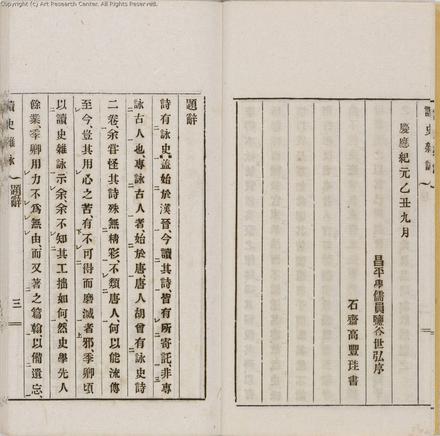 (C) Copyright: Art Research Center. All Rights Reserved.
慶應紀元乙丑九月
昌平學儒員鹽谷世弘序
石齋高豐珪書
題辭
詩有詠史葢始於漢晉今讀其詩、皆有所寄託、非專
詠古人也專詠古人者始於唐唐人胡曾有詠史詩
二卷、余嘗怪其詩殊無精彩、不類唐人、何以能流傳
至今、豈其用心之苦、有不可得而磨滅者邪季卿頃
以讀史雜詠示余、余不知其工拙如何、然史學先人
餘業季卿用力不爲無由、而又著之篇翰以備遺忘、
讀史雜詠
題辭
三